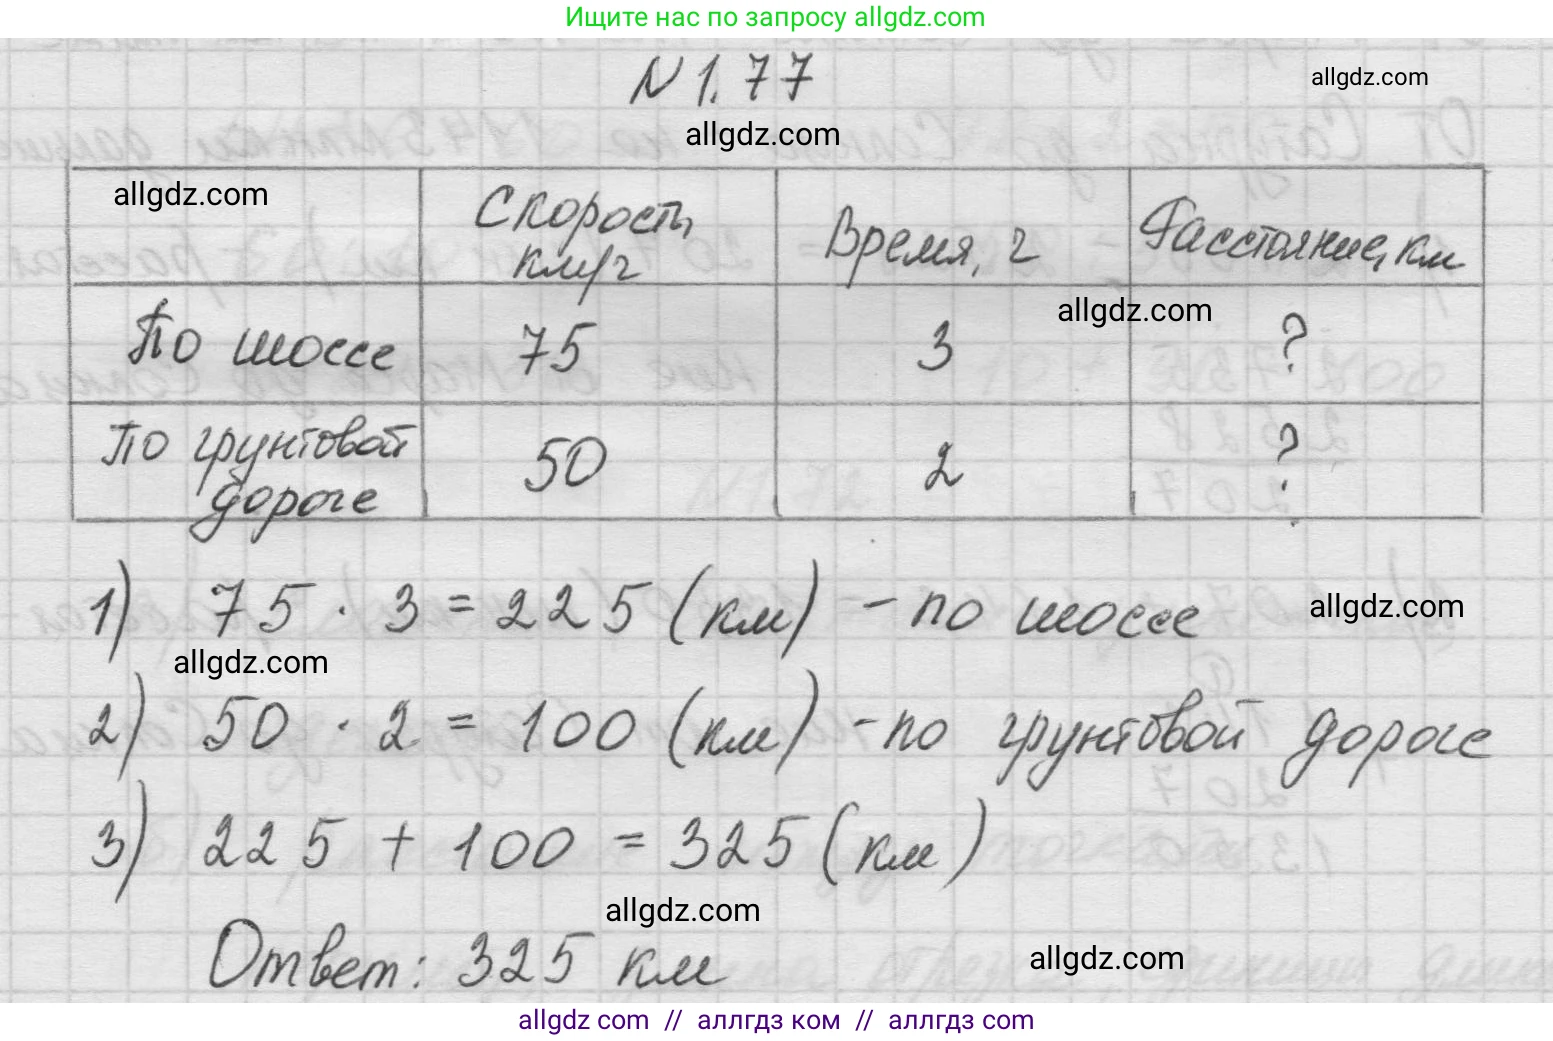 Ищите нас по запросу allgdz.com
N 1.77
allgdz.com
allgdz.com
allgdz.com
Скорость, км/ч
Время, ч
Расстояние, км
По шоссе
75
3
?
allgdz.com
По грунтовой дороге
50
2
?
1) 75 · 3 = 225 (км) - по шоссе
allgdz.com
allgdz.com
2) 50 · 2 = 100 (км) - по грунтовой дороге
3) 225 + 100 = 325 (км)
allgdz.com
Ответ: 325 км
allgdz.com
allgdz com // аллгдз ком // аллгдз com